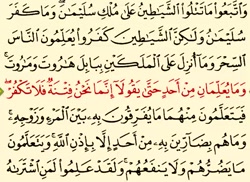 وَٱتَّبَعُوا۟ مَا تَتْلُوا۟ ٱلشَّيَـٰطِينُ عَلَىٰ مُلْكِ سُلَيْمَـٰنَ ۖ وَمَا كَفَرَ
سُلَيْمَـٰنُ وَلَـٰكِنَّ ٱلشَّيَـٰطِينَ كَفَرُوا۟ يُعَلِّمُونَ ٱلنَّاسَ
ٱلسِّحْرَ وَمَآ أُنزِلَ عَلَى ٱلْمَلَكَيْنِ بِبَابِلَ هَـٰرُوتَ وَمَـٰرُوتَ ۚ
وَمَا يُعَلِّمَانِ مِنْ أَحَدٍ حَتَّىٰ يَقُولَآ إِنَّمَا نَحْنُ فِتْنَةٌ فَلَا تَكْفُرْ ۖ
فَيَتَعَلَّمُونَ مِنْهُمَا مَا يُفَرِّقُونَ بِهِۦ بَيْنَ ٱلْمَرْءِ وَزَوْجِهِۦ ۚ
وَمَا هُم بِضَآرِّينَ بِهِۦ مِنْ أَحَدٍ إِلَّا بِإِذْنِ ٱللَّهِ ۚ وَيَتَعَلَّمُونَ
مَا يَضُرُّهُمْ وَلَا يَنفَعُهُمْ ۚ وَلَقَدْ عَلِمُوا۟ لَمَنِ ٱشْتَرَىٰهُ